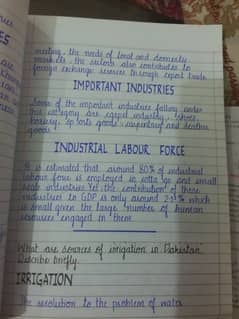 meeting the needs of local and domestic
markets, the sectors also contributes to
foreign exchange services through export trade.
IMPORTANT INDUSTRIES
Some of the important industries falling under
this category are carpet industry, shoes,
hosiery, Sports goods, carpentry and leather
goods.
INDUSTRIAL LABOUR FORCE
It is estimated that around 80% of industrial
labour force is employed in cottage and small
scale industries. Yet the contribution of these
industries to GDP is only around which
is small given the large number of human
resources engaged in them
What are sources of irrigation in Pakistan.
Describe briefly.
IRRIGATION
The resolution to the problem of water